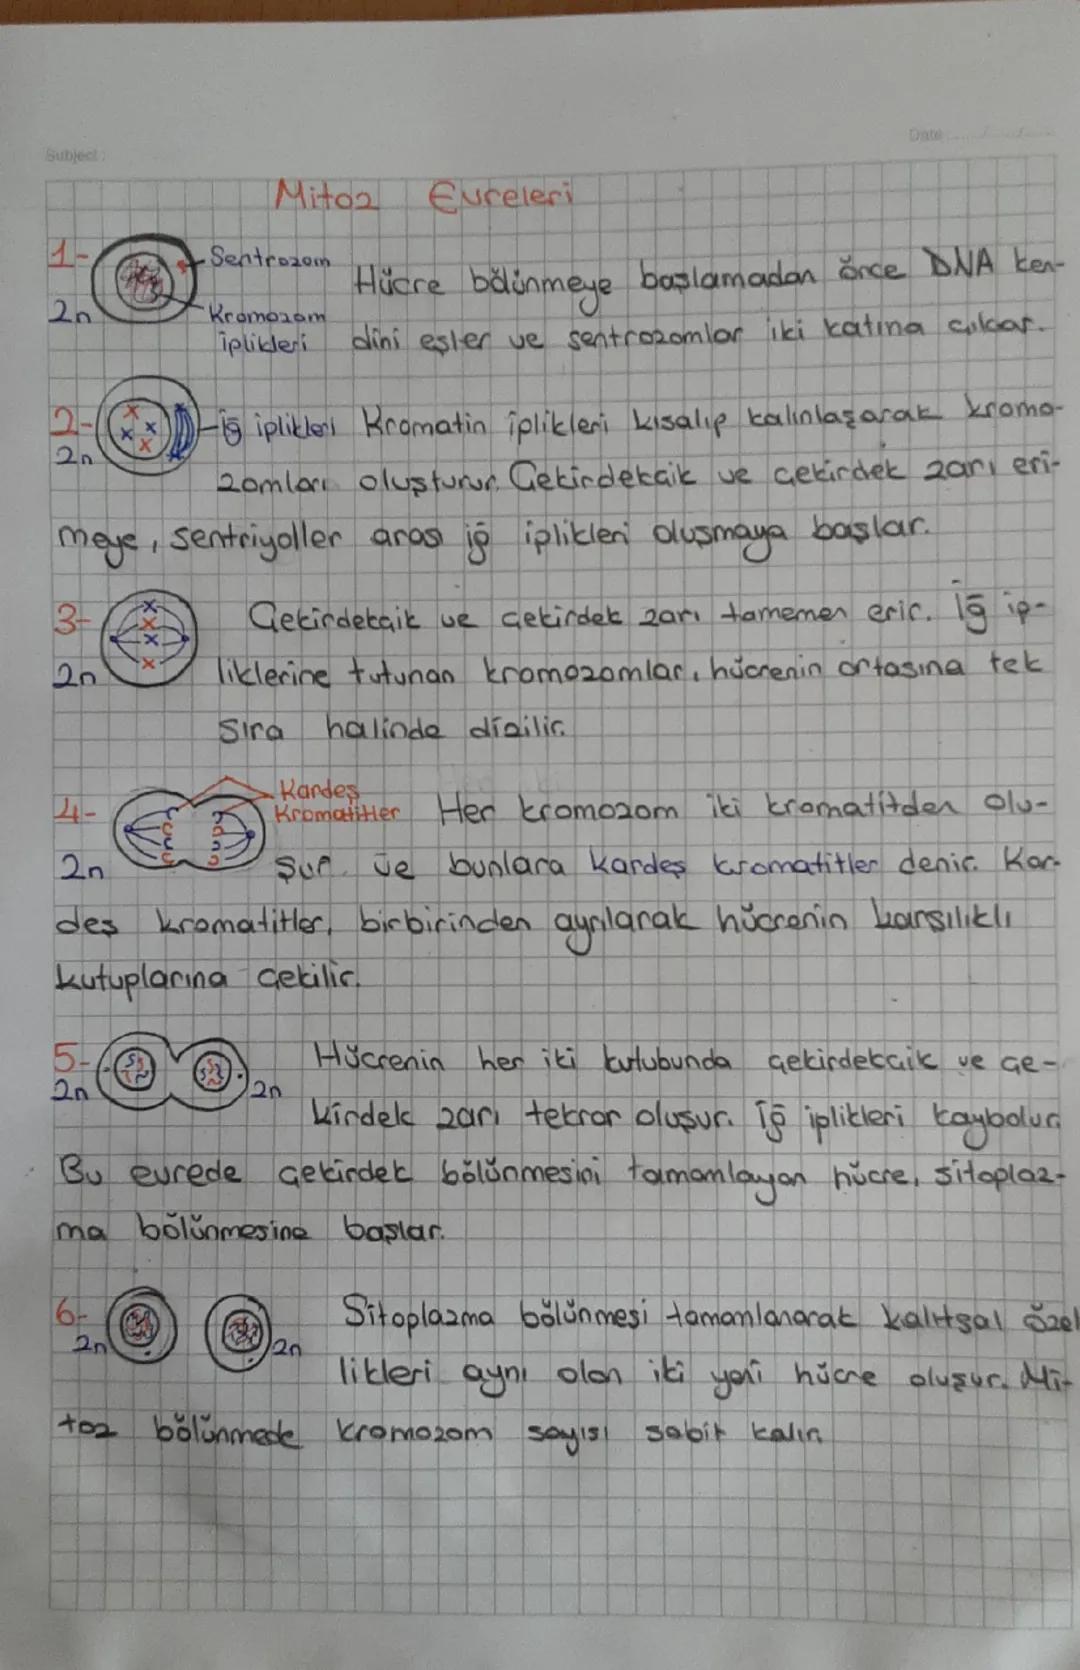 Subject:
Date
Mitoz Evreleri
1-
Sentrozom
Hücre bölünmeye başlamadan önce DNA ken-
2n
Kromozom
iplikleri
dini eşler ve sentrozomlar iki katına çıkar.
2-
İğ iplikleri Kromatin iplikleri kısalıp kalınlaşarak kromo-
2n
zomları oluşturur. Çekirdekçik ve çekirdek zarı eri-
meye, sentriyoller arası iğ iplikleri oluşmaya başlar.
3-
Çekirdekçik ve çekirdek zarı tamemen erir. İğ ip-
2n
liklerine tutunan kromozomlar, hücrenin ortasına tek
sıra halinde dizilir.
4-
Kardeş
Kromatitler
Her kromozom iki kromatitden olu-
2n
şur. ve bunlara kardeş kromatitler denir. Kar-
deş kromatitler, birbirinden ayrılarak hücrenin karşılıklı
kutuplarına çekilir.
5-
Hücrenin her iki kutubunda çekirdekçik ve çe-
2n
2n
kirdek zarı tekrar oluşur. İğ iplikleri kaybolur.
Bu evrede çekirdek bölünmesini tamamlayan hücre, sitoplaz-
ma bölünmesine başlar.
6-
Sitoplazma bölünmesi tamamlanarak kalıtsal özel
2n
2n
likleri aynı olan iki yeni hücre oluşur. Mi-
toz bölünmede kromozom sayısı sabit kalır.